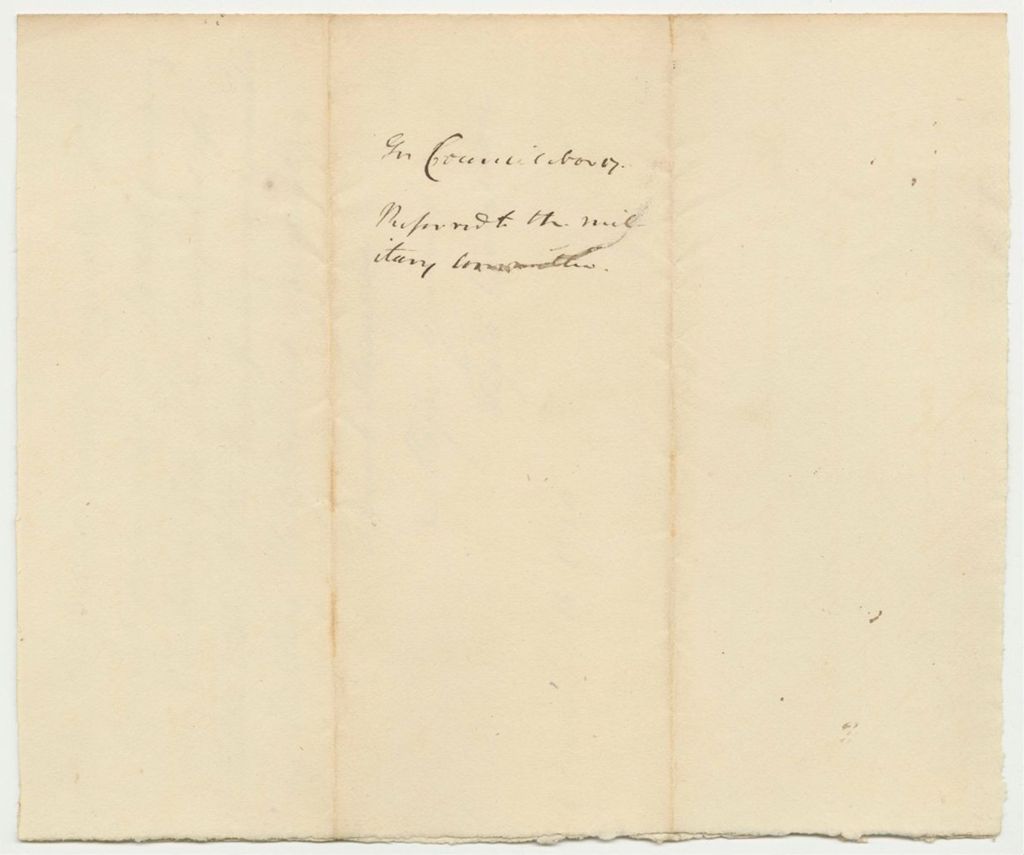 In Council Nov 17.
Referred to the mil-
itary Committee.